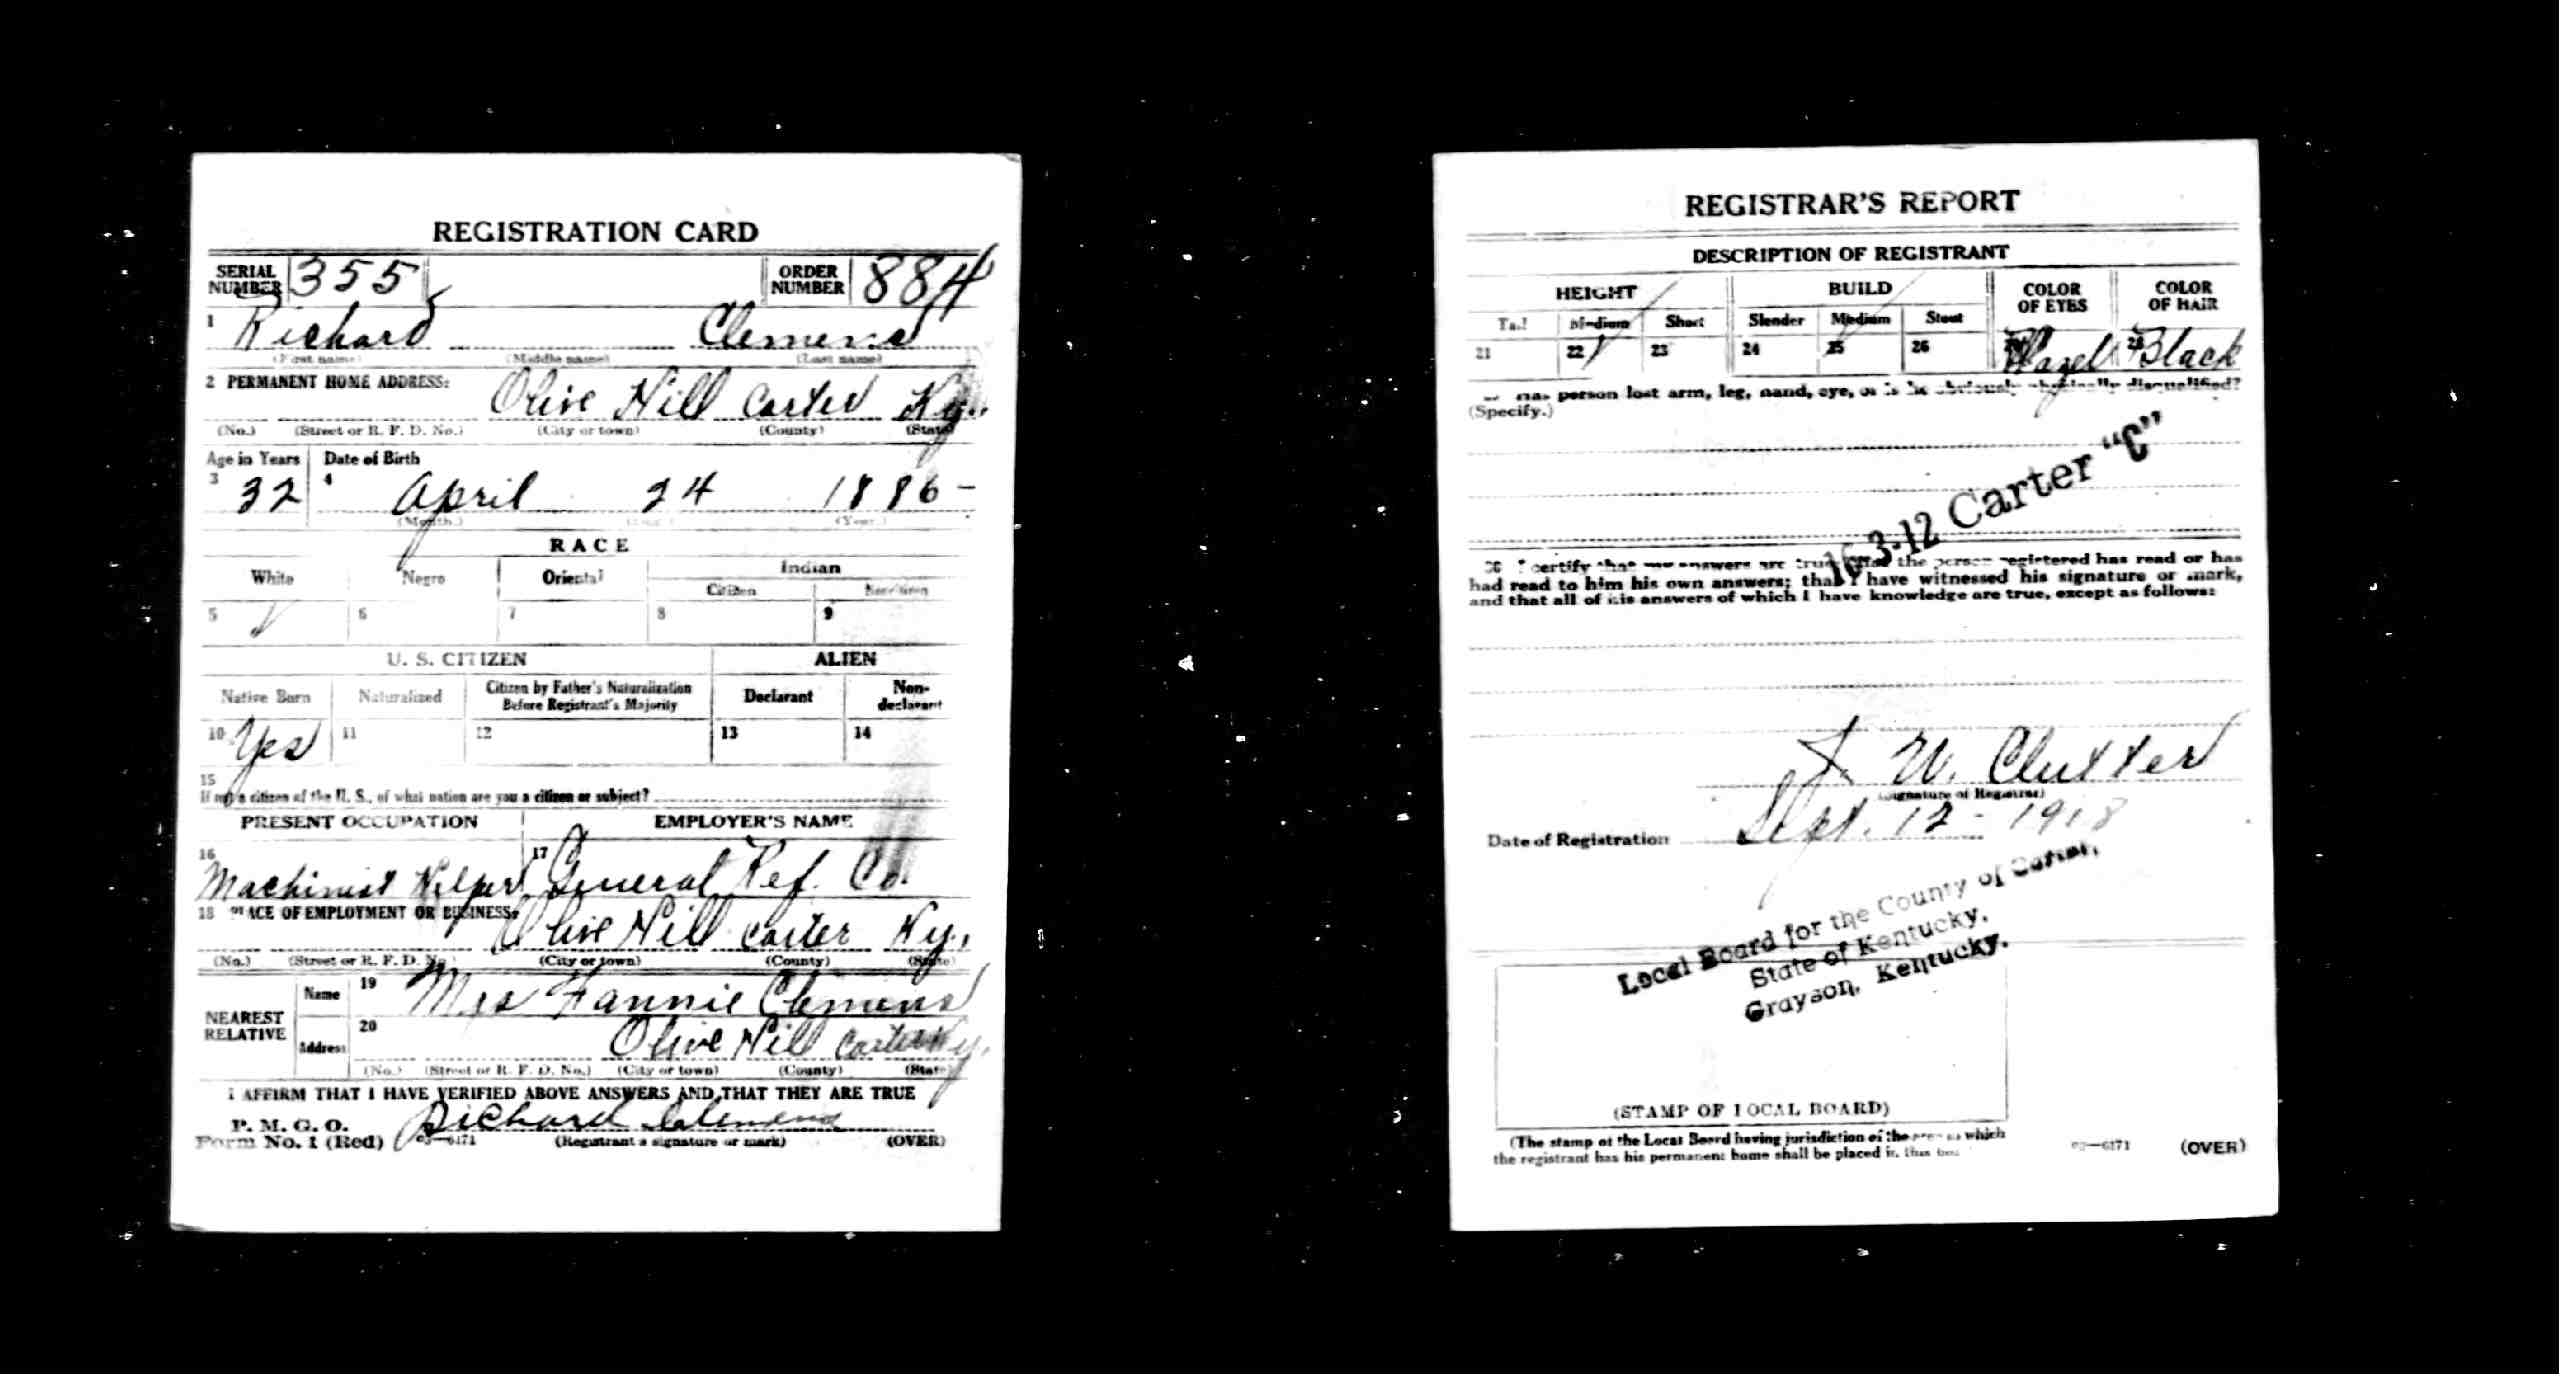 REGISTRATION CARD
SERIAL NUMBER 355 ORDER NUMBER 884
1 Richard Clemens
(First name) (Middle name) (Last name)
2 PERMANENT HOME ADDRESS:
Olive Hill Carter Ky.
(No.) (Street or R. F. D. No.) (City or town) (County) (State)
Age in Years Date of Birth
3 32 4 April 24 1886 -
(Month.) (Year.)
RACE
White Negro Oriental Indian
Citizen
5 6 7 8 9
U. S. CITIZEN ALIEN
Native Born Naturalized Citizen by Father's Naturalization Before Registrant's Majority Declarant Non-declarant
10 Yes 11 12 13 14
15
If not a citizen of the U. S., of what nation are you a citizen or subject?
PRESENT OCCUPATION EMPLOYER'S NAME
16 Machinist Helper 17 General Ref. Co.
18 PLACE OF EMPLOYMENT OR BUSINESS:
Olive Hill Carter Ky.
(No.) (Street or R. F. D. No.) (City or town) (County) (State)
NEAREST RELATIVE
Name 19 Mrs Fannie Clemens
Address 20 Olive Hill Carter Ky.
(No.) (Street or R. F. D. No.) (City or town) (County) (State)
I AFFIRM THAT I HAVE VERIFIED ABOVE ANSWERS AND THAT THEY ARE TRUE
P. M. G. O.
Form No. 1 (Red) 03—6171 Richard Clemens
(Registrant's signature or mark) (OVER)
REGISTRAR'S REPORT
DESCRIPTION OF REGISTRANT
HEIGHT BUILD COLOR OF EYES COLOR OF HAIR
Tall Medium Short Slender Medium Stout
21 22 23 24 25 26 27 Hazel 28 Black
person lost arm, leg, hand, eye, or is he obviously physically disqualified?
(Specify.)
16-3-12 Carter "C"
30 I certify that my answers are true; that the person registered has read or has
had read to him his own answers; that I have witnessed his signature or mark,
and that all of his answers of which I have knowledge are true, except as follows:
J. W. Clutter
(Signature of Registrar)
Date of Registration Sept. 12 - 1918
Local Board for the County of Carter,
State of Kentucky,
Grayson, Kentucky.
(STAMP OF LOCAL BOARD)
(The stamp of the Local Board having jurisdiction of the area in which
the registrant has his permanent home shall be placed in this box.)
03—6171 (OVER)